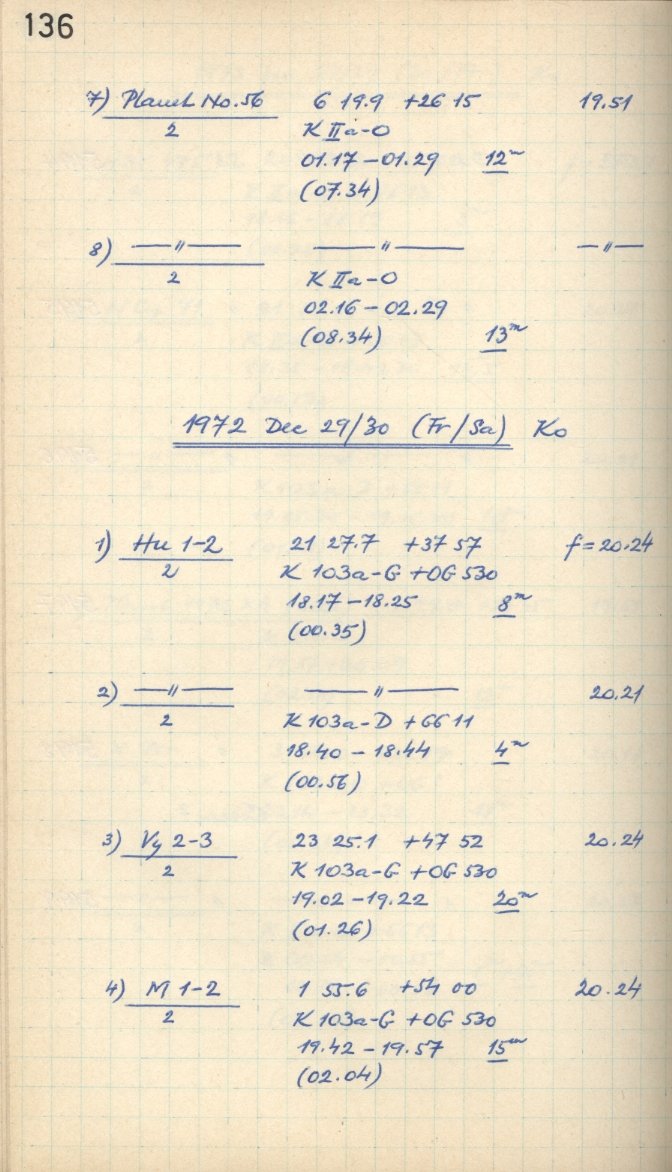 136
7) Planet No. 56 6 19.9 +26 15 19.51
2 K IIa-O
01.17 – 01.29 12m
(07.34)
8) —〃— —〃— —〃—
2 K IIa-O
02.16 – 02.29
(08.34) 13m
1972 Dec 29/30 (Fr/Sa) Ko
1) Hu 1-2 21 27.7 +37 57 f = 20.24
2 K 103a-G + OG 530
18.17 – 18.25 8m
(00.35)
2) —〃— —〃— 20.21
2 K 103a-D + GG 11
18.40 – 18.44 4m
(00.56)
3) Vy 2-3 23 25.1 +47 52 20.24
2 K 103a-G + OG 530
19.02 – 19.22 20m
(01.26)
4) M 1-2 1 55.6 +54 00 20.24
2 K 103a-G + OG 530
19.42 – 19.57 15m
(02.04)